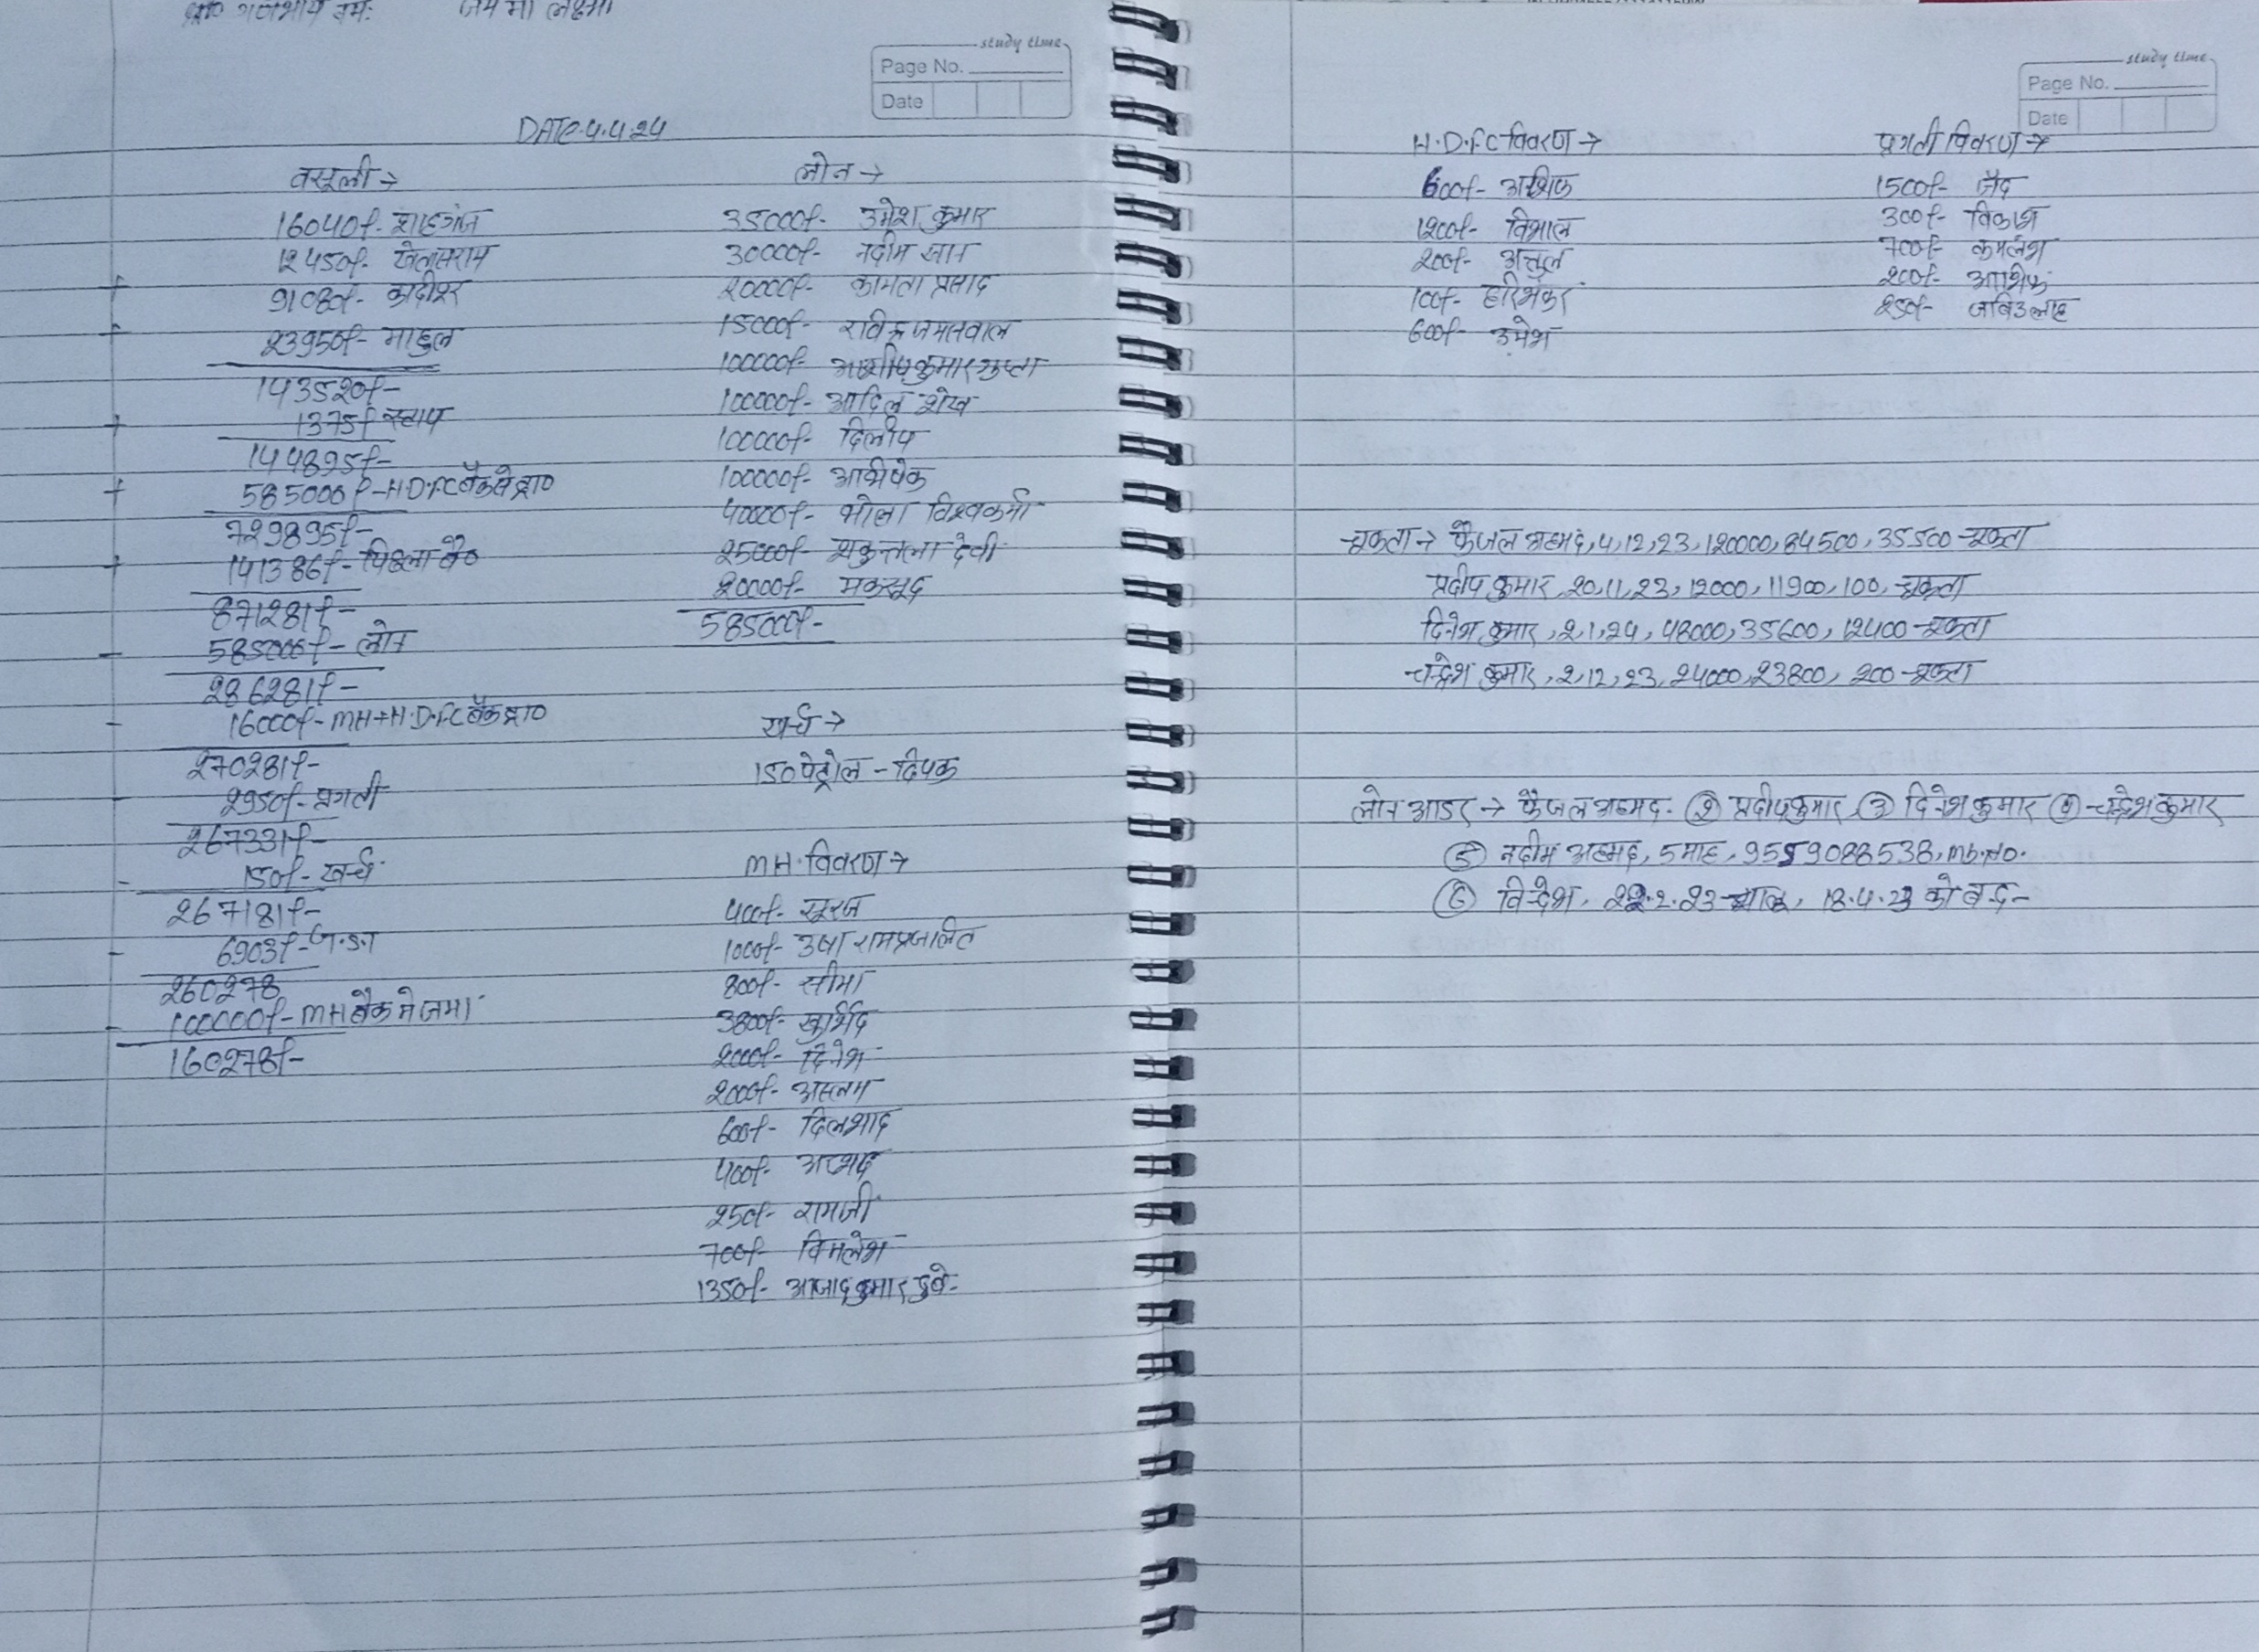 गणेशाय नमः जय माँ लक्ष्मी
study time
Page No.
Date
DATE.4.4.24
वसूली →
16040/- शाहगंज
12450/- खेतासराय
+ 91080/- कादीपुर
+ 23950/- माहुल
143520/-
+ 1375/- स्टाप
144895/-
+ 585000/- H.D.FC बैंक से प्रा०
729895/-
+ 141386/- पिछला बै०
871281/-
- 585000/- लोन
286281/-
- 16000/- MH+H.D.FC बैंक प्रा०
270281/-
- 2950/- प्रगती
267331/-
- 150/- खर्च
267181/-
- 6903/- ज.ड.ा
260278
- 100000/- MH बैंक मे जमा
160278/-
लोन →
35000/- उमेश कुमार
30000/- नदीम खान
20000/- कामता प्रसाद
15000/- रविन्द्र जयसवाल
100000/- आशीष कुमार गुप्ता
100000/- आदिल शेख
100000/- दिलीप
100000/- अभिषेक
40000/- भोला विश्वकर्मा
25000/- शकुन्तला देवी
20000/- मकसूद
585000/-
खर्च →
150 पेट्रोल - दिपक
MH. विवरण →
400/- सूरज
1000/- उषा रामप्रजलित
800/- सीमा
3800/- खुर्शिद
2000/- दिनेश
2000/- असलम
600/- दिलशाद
400/- अरशद
250/- रामजी
700/- विमलेश
1350/- आजाद कुमार दुबे
study time
Page No.
Date
H.D.FC विवरण →
600/- आशिफ
1200/- विशाल
200/- अतुल
100/- हरिशंकर
600/- उमेश
प्रगती विवरण →
1500/- जैद
300/- विकाश
700/- कमलेश
200/- आशिफ
250/- जबिउल्लाह
चुकता → फैजल अहमद, 4,12,23, 120000, 84500, 35500 चुकता
प्रदीप कुमार, 20,11,23, 12000, 11900, 100, चुकता
दिनेश कुमार, 2,1,24, 48000, 35600, 12400 चुकता
चन्द्रेश कुमार, 2,12,23, 24000, 23800, 200 चुकता
लोन आडर → फैजल अहमद. ② प्रदीप कुमार ③ दिनेश कुमार ④ चन्द्रेश कुमार
⑤ नदीम अहमद, 5 माह, 9559088538, Mb.No.
⑥ विन्देश, 22.2.23 चालू, 18.4.23 को बन्द-